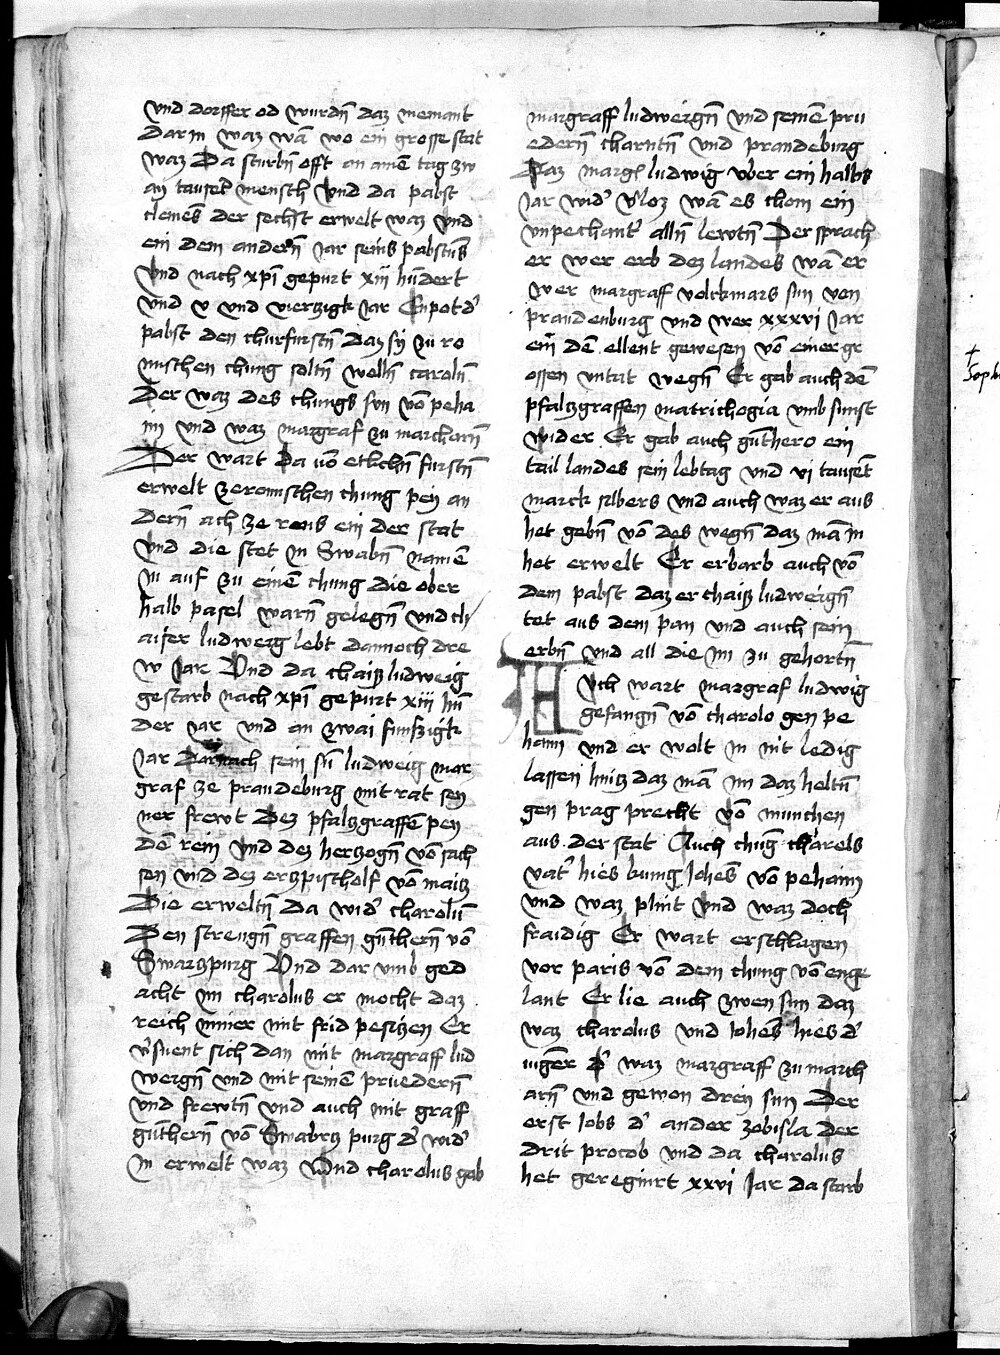 vnd dorffer od wurdñ daz niemant
darin waz wā wo ein grosse stat
waz Da sturbñ offt an ainē tag zw
ay tausēt mensch vnd da pabst
clemēs der sechst erwelt waz vnd
ein dem andern̄ Jar seins pabstūs
vnd nach xp̄i gepurt xiij hūdert
vnd v vnd vierzigk Jar Enpot d'
pabst den churfurstñ daz sy zu ro
mischen chung soltñ welln̄ carolū
Der waz des chungs sun vō peha
im vnd waz margraf zu marcharn̄
Der wart da vō etlichñ furstñ
erwelt ze romischen chung pey an
dern̄ ach ze rens ein der stat
vnd die stet in Swabñ namē
in auf zu einē chung die ober
halb pasel warn̄ gelegñ vnd ch
aiser ludweig lebt dannoch dre
w Jar Vnd da chaisz ludweig
gestarb nach xp̄i gepurt xiij hū
der Jar vnd an zwai funfzigk
Jar Darnach sein sū ludweig mar
graf ze prandeburg mit rat sey
ner frewt Dez pfalzgraffē pey
dē rein vnd dez herzogñ vō sach
sen vnd dez erzpischolf vō maiz
Die erweltñ da wid' charolū
Den strengñ graffen gūthern̄ vō
Swarzpurg Vnd dar vmb ged
acht im charolus er mocht daz
reich nimer mit frid pesizen Er
v'suent sich dan mit margraff lud
weign̄ vnd mit seinē pruedern̄
vnd frewtñ vnd auch mit graff
gūthern̄ vō Swabrz purg d' wid'
in erwelt waz Vnd charolus gab
margraff ludweign̄ vnd seinē pru
edern̄ charntñ vnd prandeburg
Daz margf ludwig vber ein halbs
Jar wid' v'loz wā es chom ein
vnpechant' alln̄ lewtñ Der sprach
er wer erb dez landes wā er
wer margraff volckmars sun von
prandenburg vnd wer xxxvi Jar
ein dē ellent gewesen vō einer gr
ossen vntat wegñ Er gab auch dē
pfalzgraffen matrichogia vmb sunst
wider Er gab auch gūthero ein
tail landes sein lebtag vnd vi tausēt
marck silbers vnd auch waz er aus
het gebñ vō des wegñ daz mā in
het erwelt Er erbarb auch vō
dem pabst daz er chaisz ludweign̄
tet aus dem pan vnd auch sein
erbñ vnd all die im zu gehortñ
Auch wart margraf ludwig
gefangñ vō charolo gen pe
haim vnd er wolt in nit ledig
lassen hinz daz mā im daz heltū
gen prag precht vō munchen
aus der stat Auch chung charels
vat' hies kunig Johēs vō pehaim
vnd waz plint vnd waz doch
fraidig Er wart erschlagen
vor paris vō dem chung vō enge
lant Er lie auch zwen sun daz
waz charolus vnd Johēs hies d'
iunger d' waz margraff zu march
arn̄ vnd gewon drey sun Der
erst Jobs d' ander zobisla der
drit procob vnd da charolus
het gereginrt xxvi Jar da starb